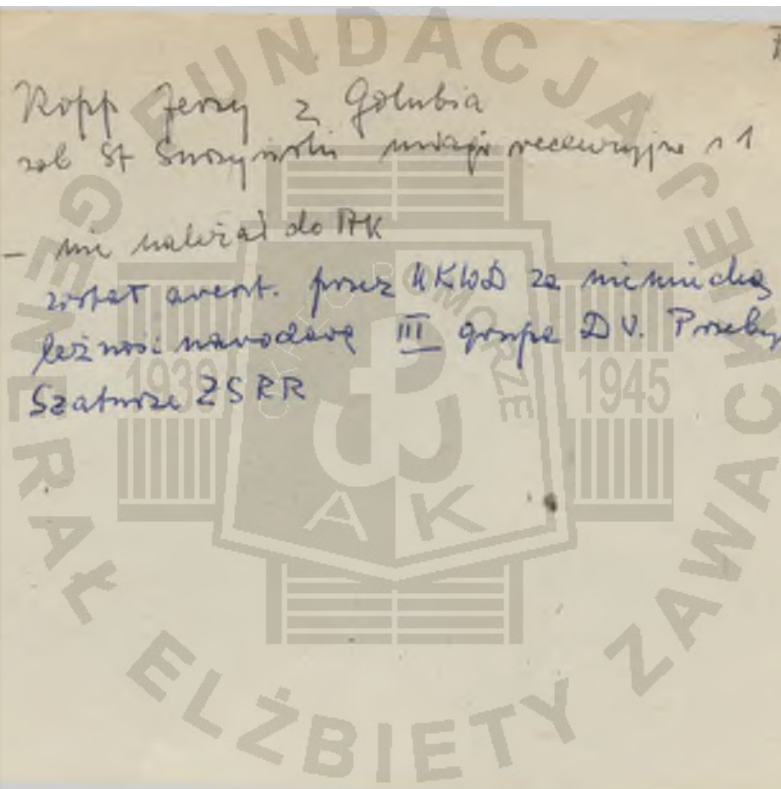 Kopp Jerzy z Golubia
zob St Surszyński uwagi recenzyjne s 1
– nie należał do AK
został areszt. przez NKWD za niemiecką
leżność narodową III grupa D V. Przeby
Szaturze ZSRR
FUNDACJA GENERAŁ ELŻBIETY ZAWACKIEJ
POMORZE
1939 1945
AK